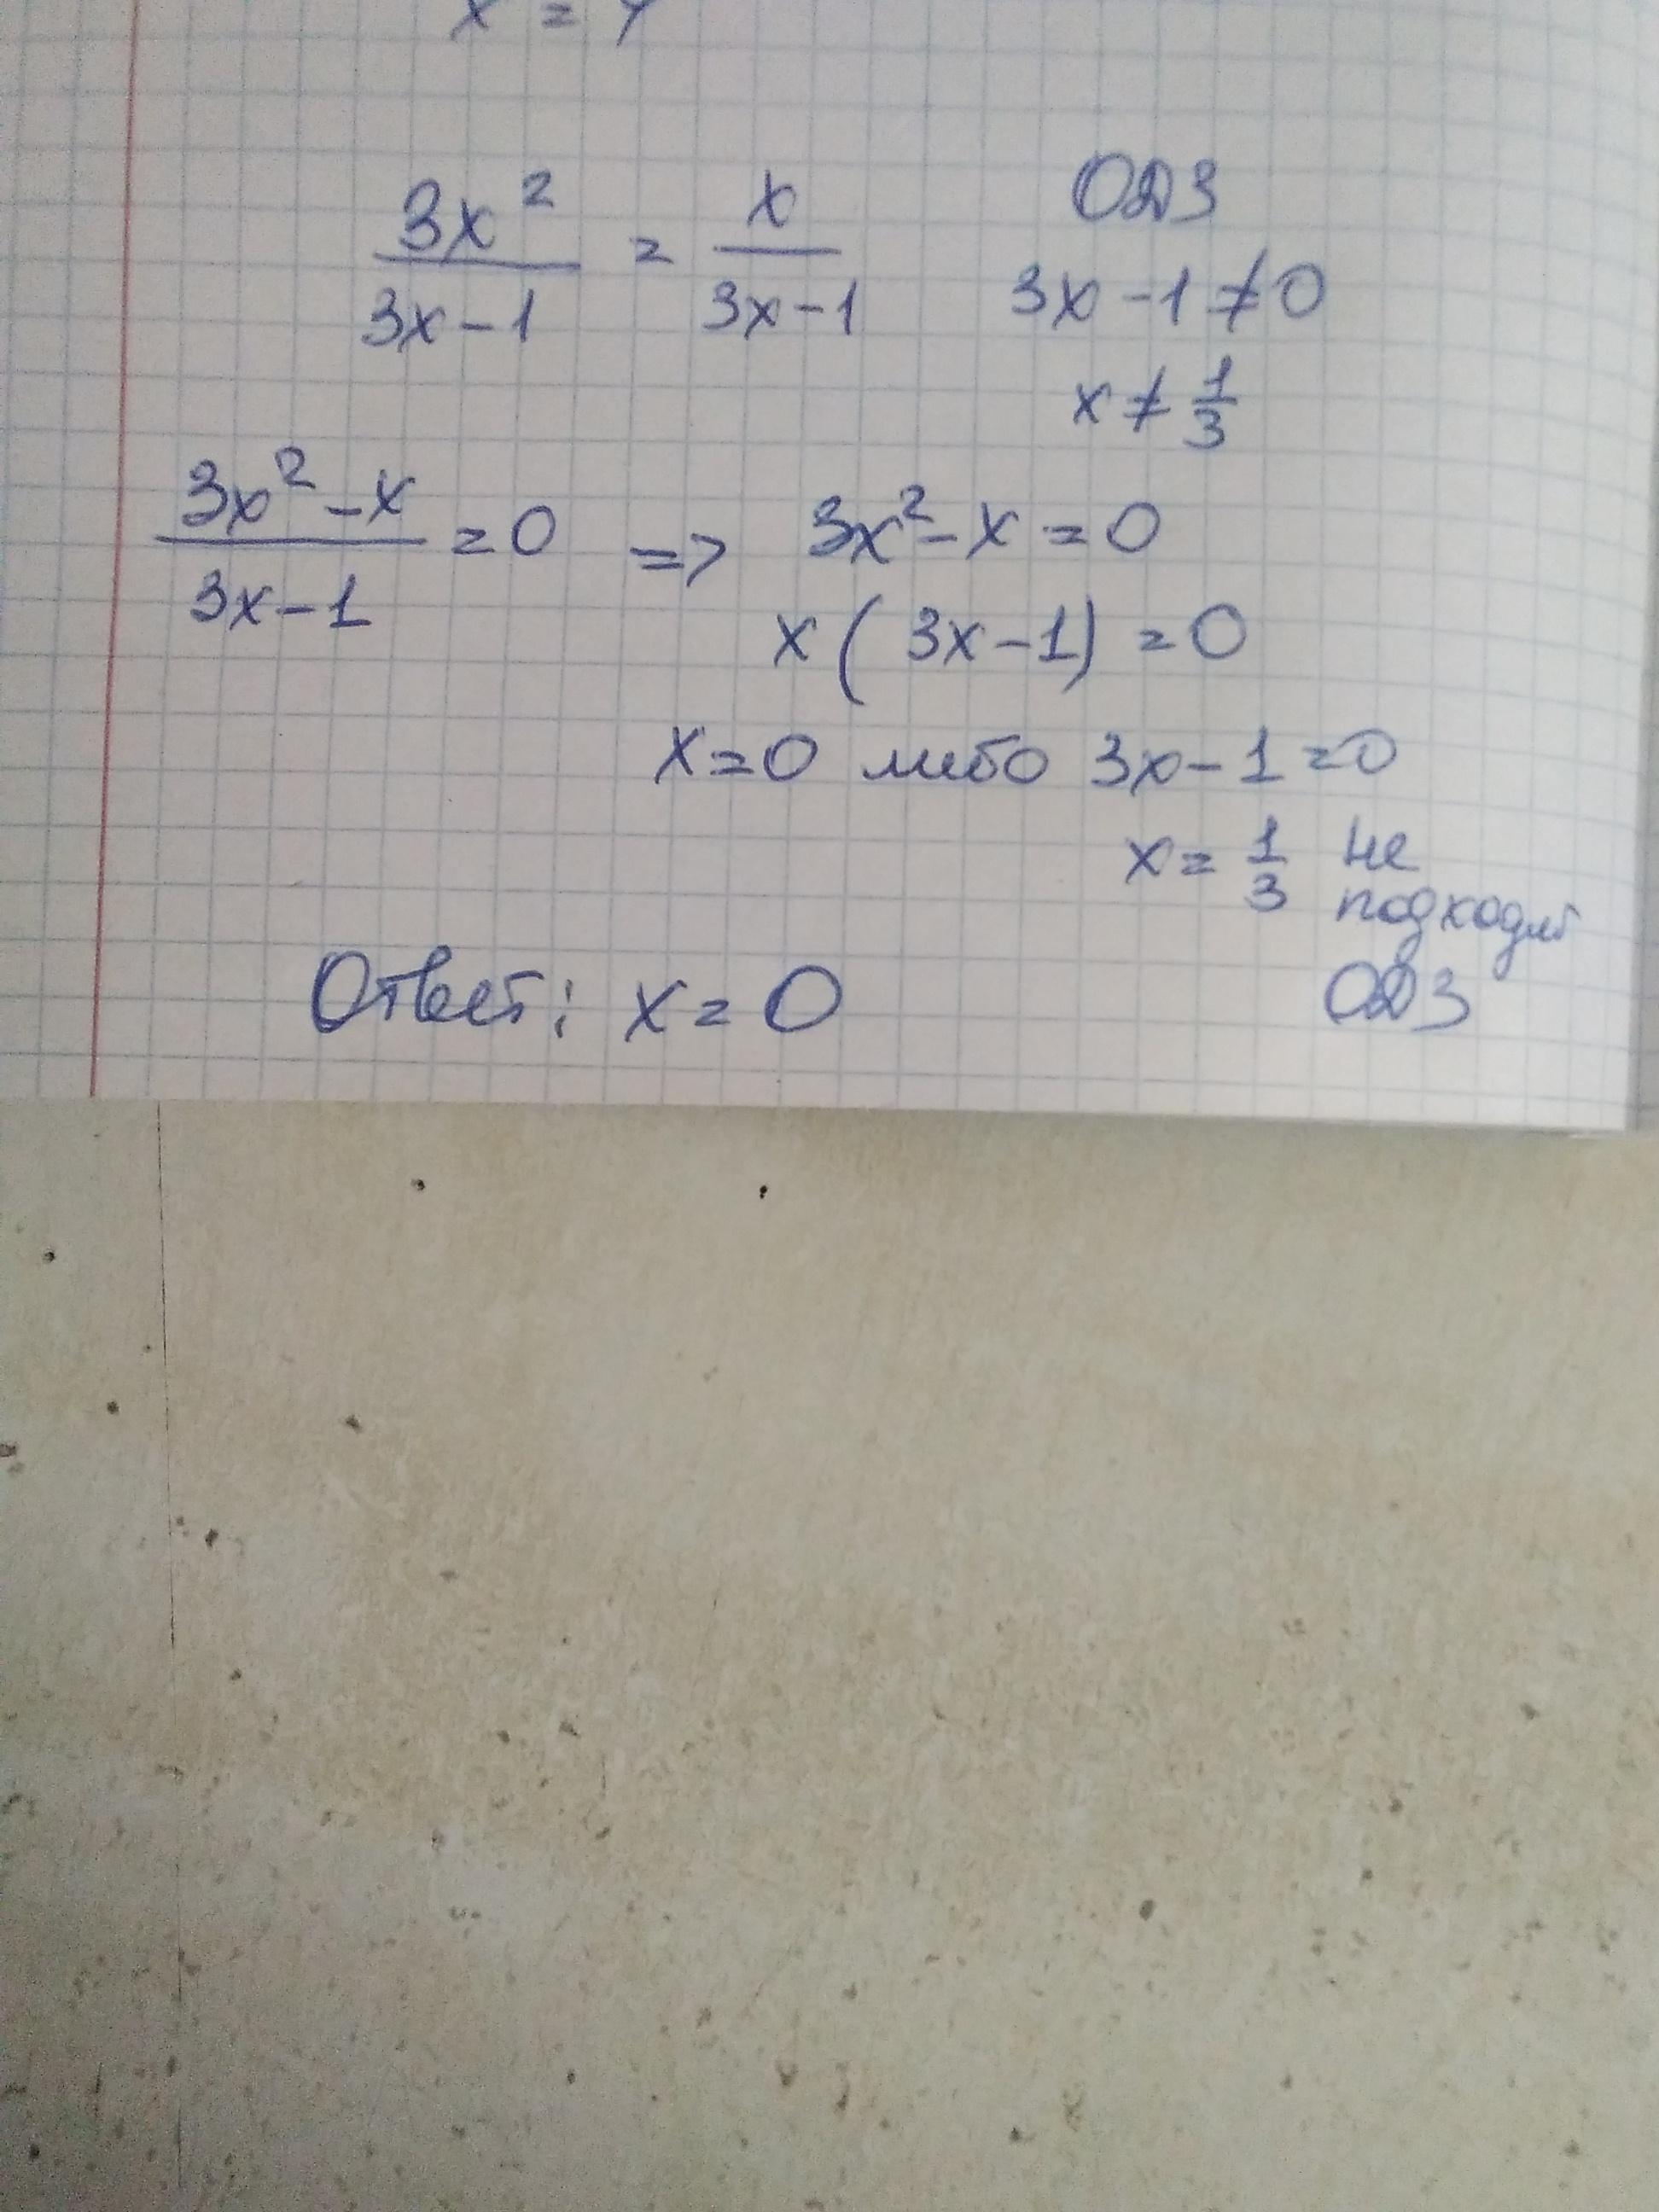 3x² / 3x-1 = x / 3x-1
ОДЗ
3x-1≠0
x≠1/3
3x²-x / 3x-1 =0 => 3x²-x=0
x(3x-1)=0
x=0 либо 3x-1=0
x=1/3 не
подходит
ОДЗ
Ответ: x=0